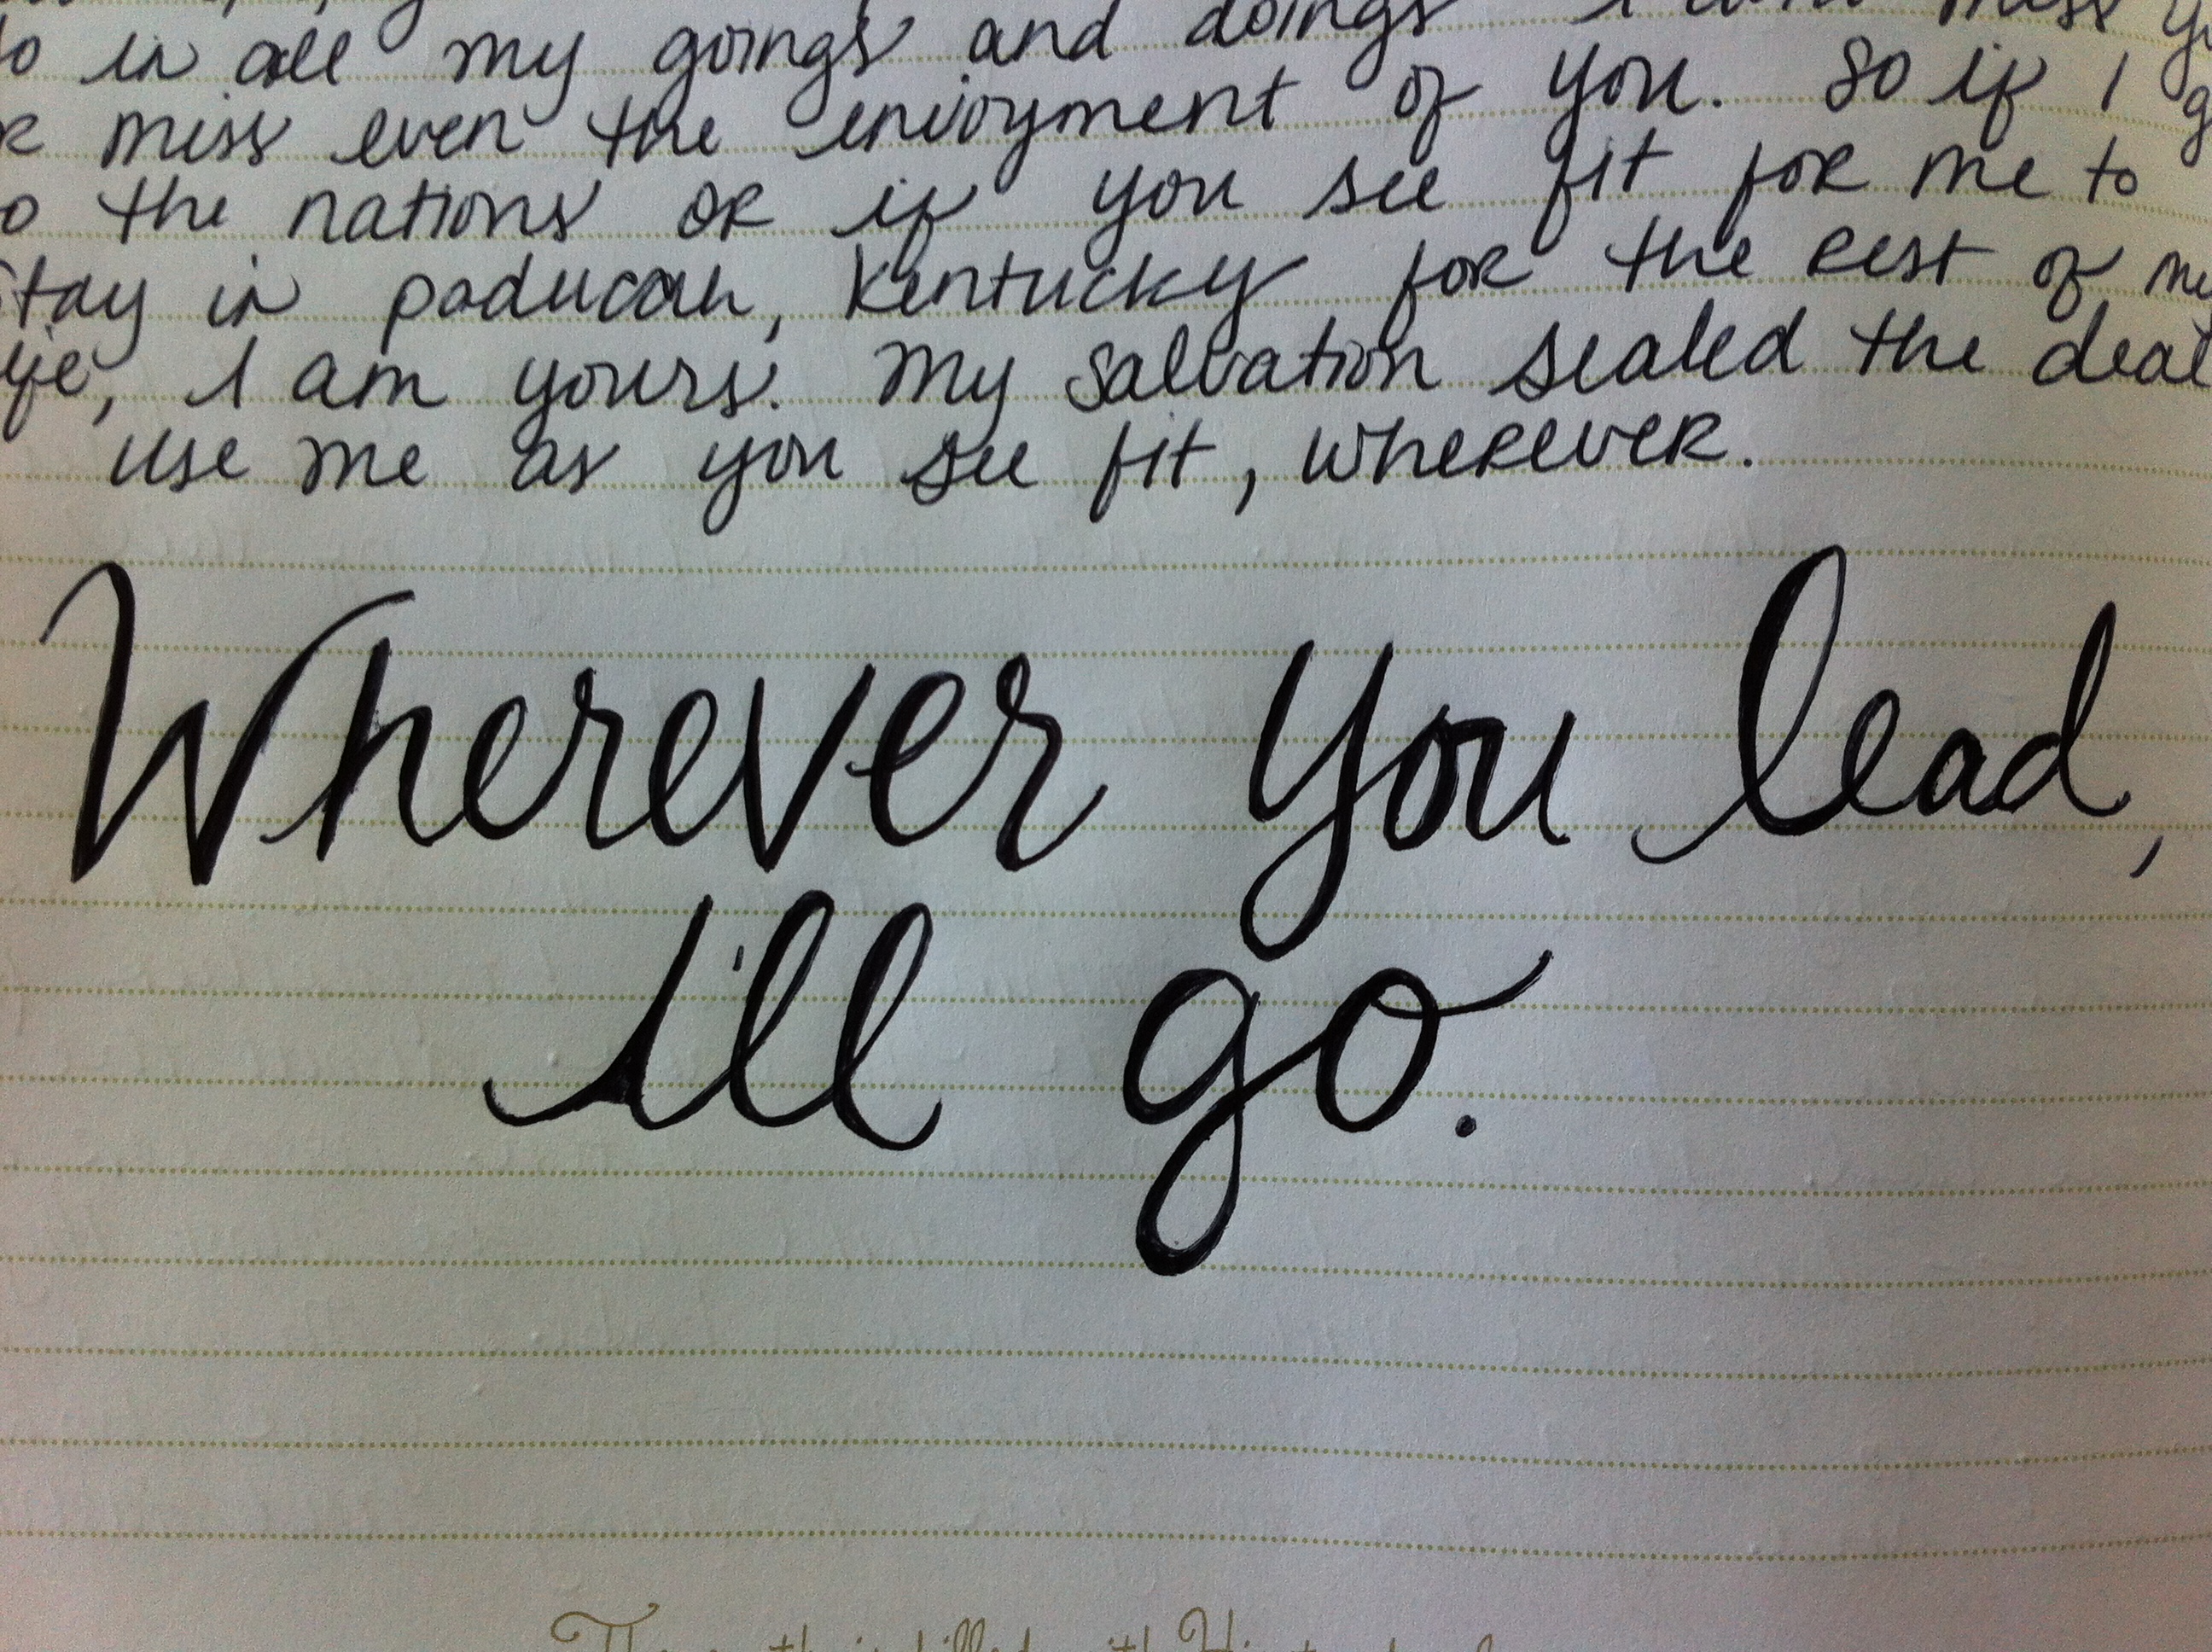 in all my goings and doings I miss
miss even the enjoyment of you. So if I
the nations or if you see fit for me to
stay in paducah, Kentucky for the rest of my
life, I am yours. My salvation sealed the deal
use me as you see fit, wherever.
Wherever you lead,
I'll go.